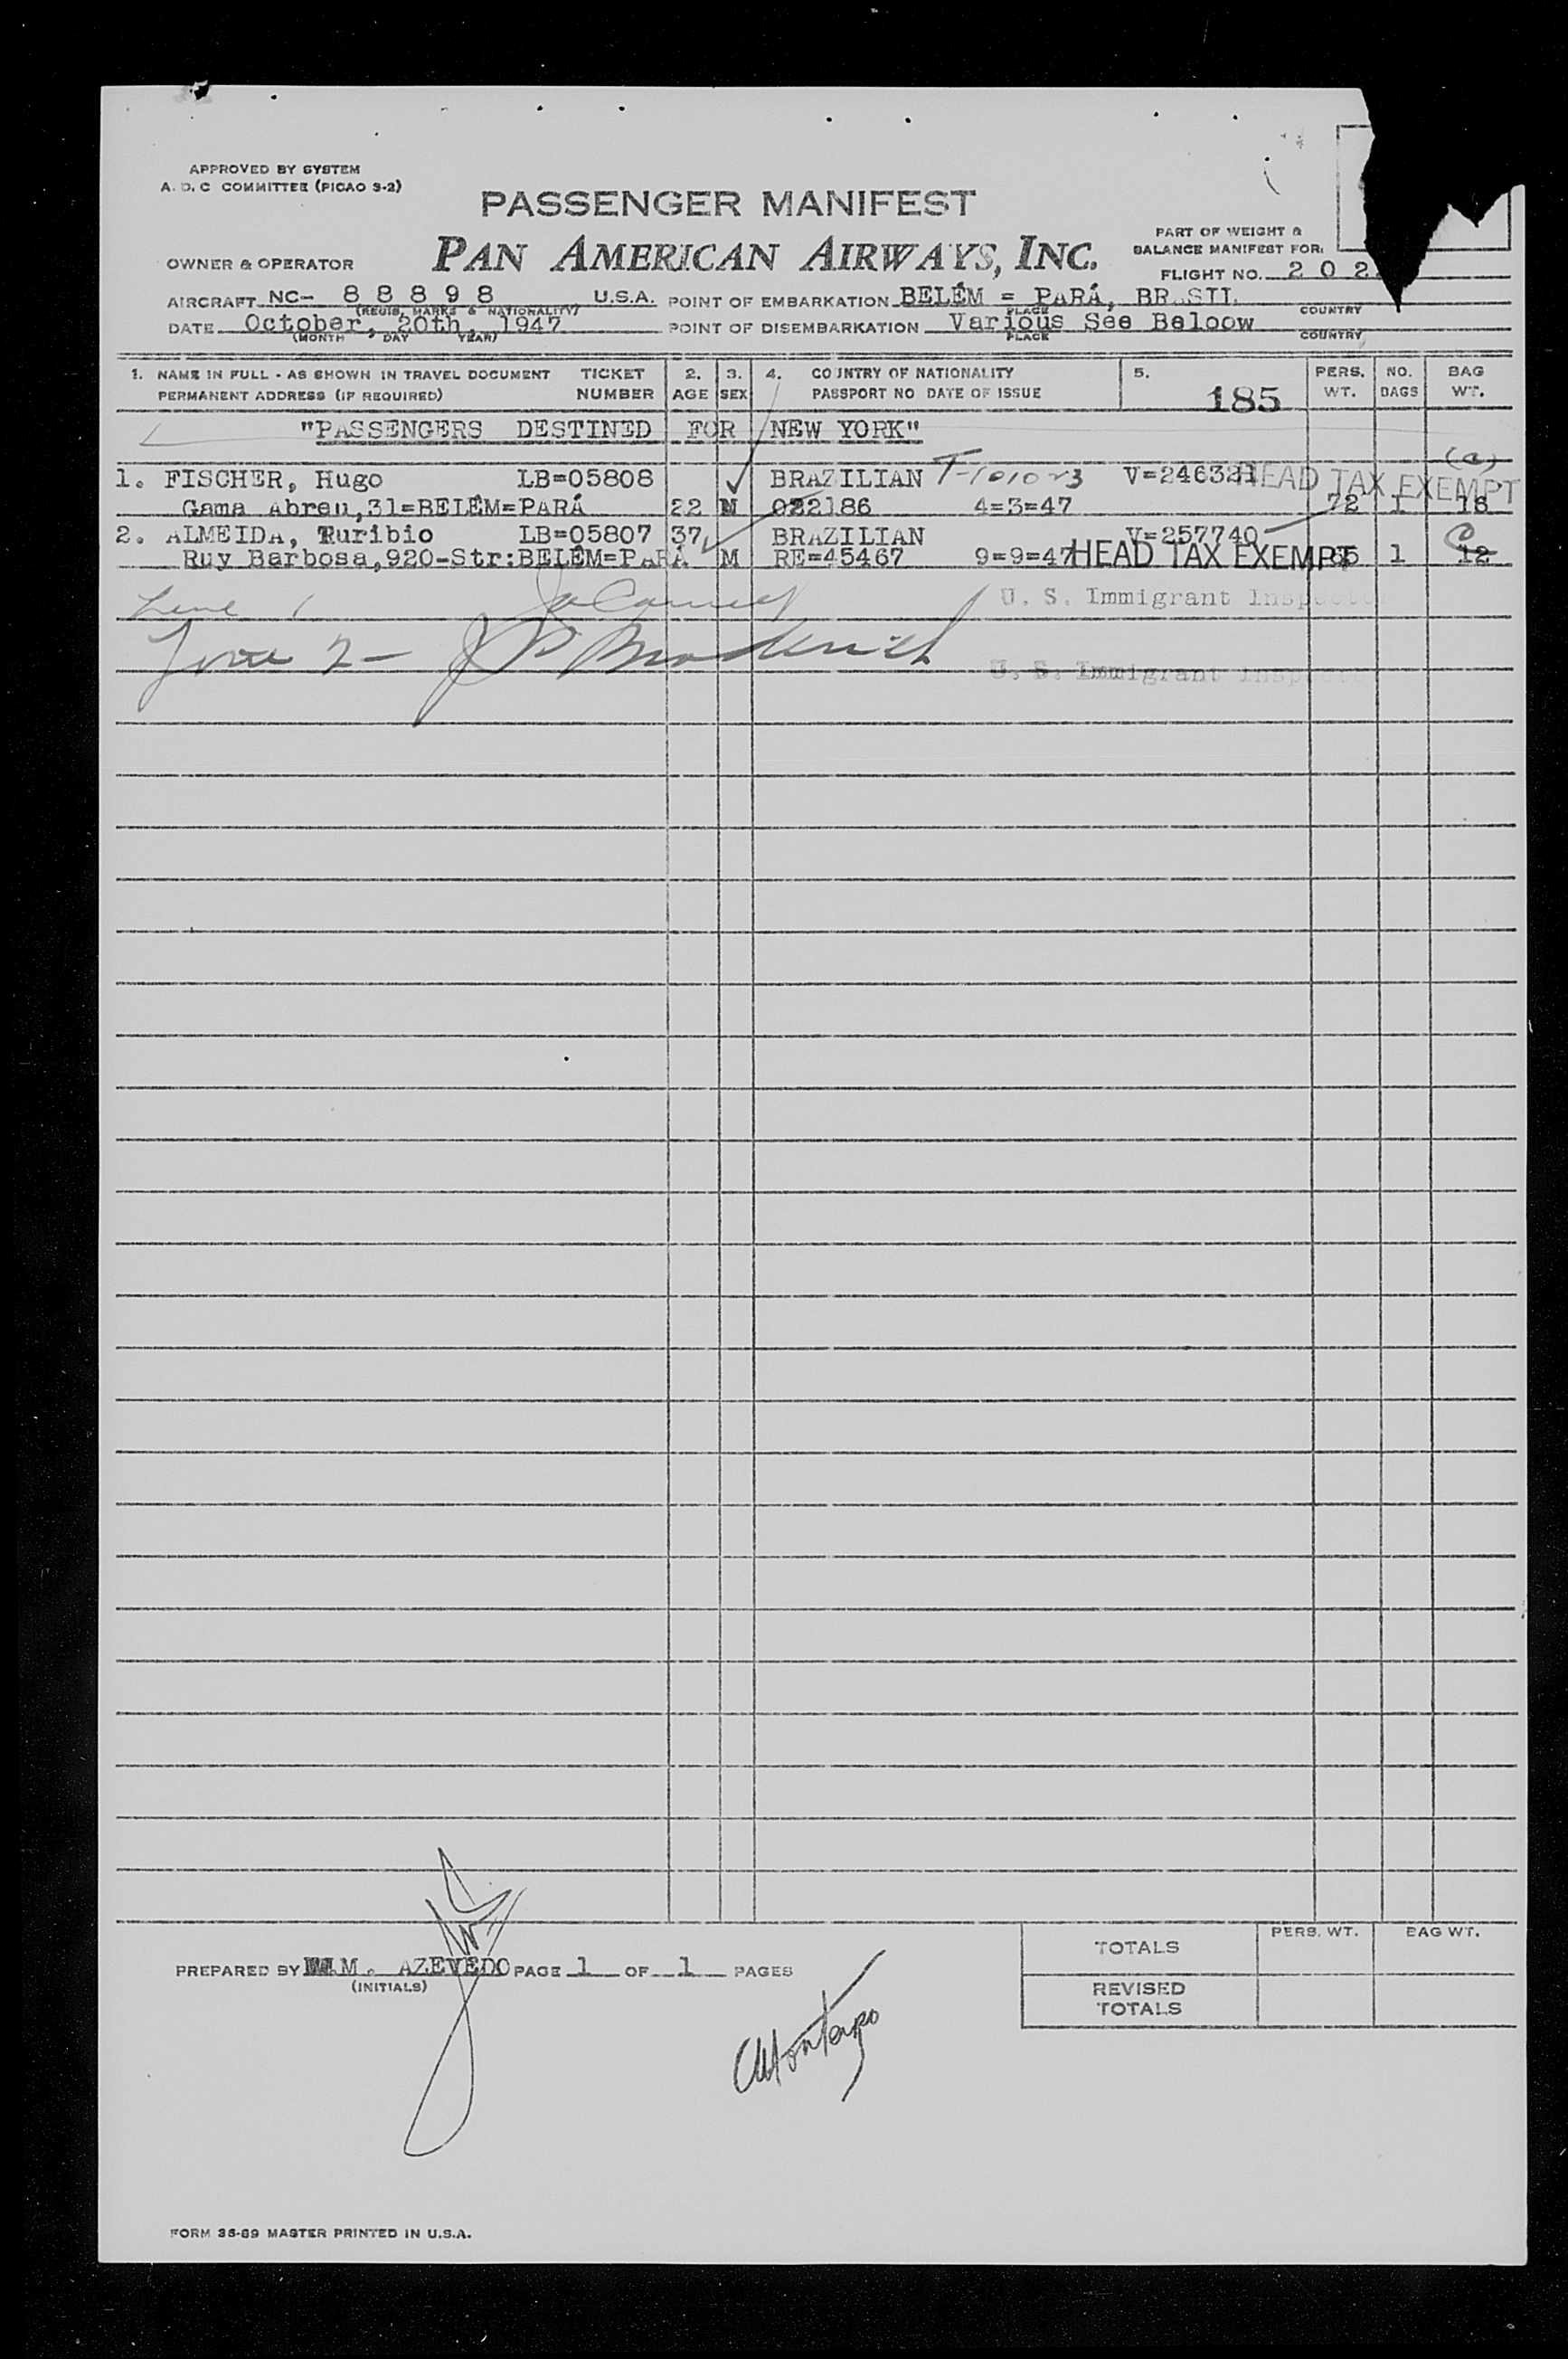 APPROVED BY SYSTEM
A. D. C COMMITTEE (PICAO S-2)
PASSENGER MANIFEST
PAN AMERICAN AIRWAYS, INC.
PART OF WEIGHT &
BALANCE MANIFEST FOR:
OWNER & OPERATOR
FLIGHT NO. 2 0 2
AIRCRAFT NC- 8 8 8 9 8 U.S.A. POINT OF EMBARKATION BELÉM = PARÁ,
(REGIS. MARKS & NATIONALITY) PLACE COUNTRY
DATE October, 20th, 1947 POINT OF DISEMBARKATION Various See Beloow
(MONTH DAY YEAR) PLACE COUNTRY
1. NAME IN FULL - AS SHOWN IN TRAVEL DOCUMENT TICKET 2. 3. 4. COUNTRY OF NATIONALITY 5. PERS. NO. BAG
PERMANENT ADDRESS (IF REQUIRED) NUMBER AGE SEX PASSPORT NO DATE OF ISSUE 185 WT. BAGS WT.
"PASSENGERS DESTINED FOR NEW YORK"
1. FISCHER, Hugo LB=05808 BRAZILIAN V=246321 HEAD TAX EXEMPT
Gama Abreu,31=BELÉM=PARÁ 22 M 022186 4=3=47 72 1 18
2. ALMEIDA, Turibio LB=05807 37 BRAZILIAN V=257740
Ruy Barbosa,920-Str:BELÉM=PARÁ M RE=45467 9=9=47 HEAD TAX EXEMPT 1 12
Line 1 U. S. Immigrant Inspector
Line 2 - U. S. Immigrant Inspector
TOTALS PERS. WT. BAG WT.
PREPARED BY M. AZEVEDO PAGE 1 OF 1 PAGES
(INITIALS)
REVISED
TOTALS
FORM 36-89 MASTER PRINTED IN U.S.A.